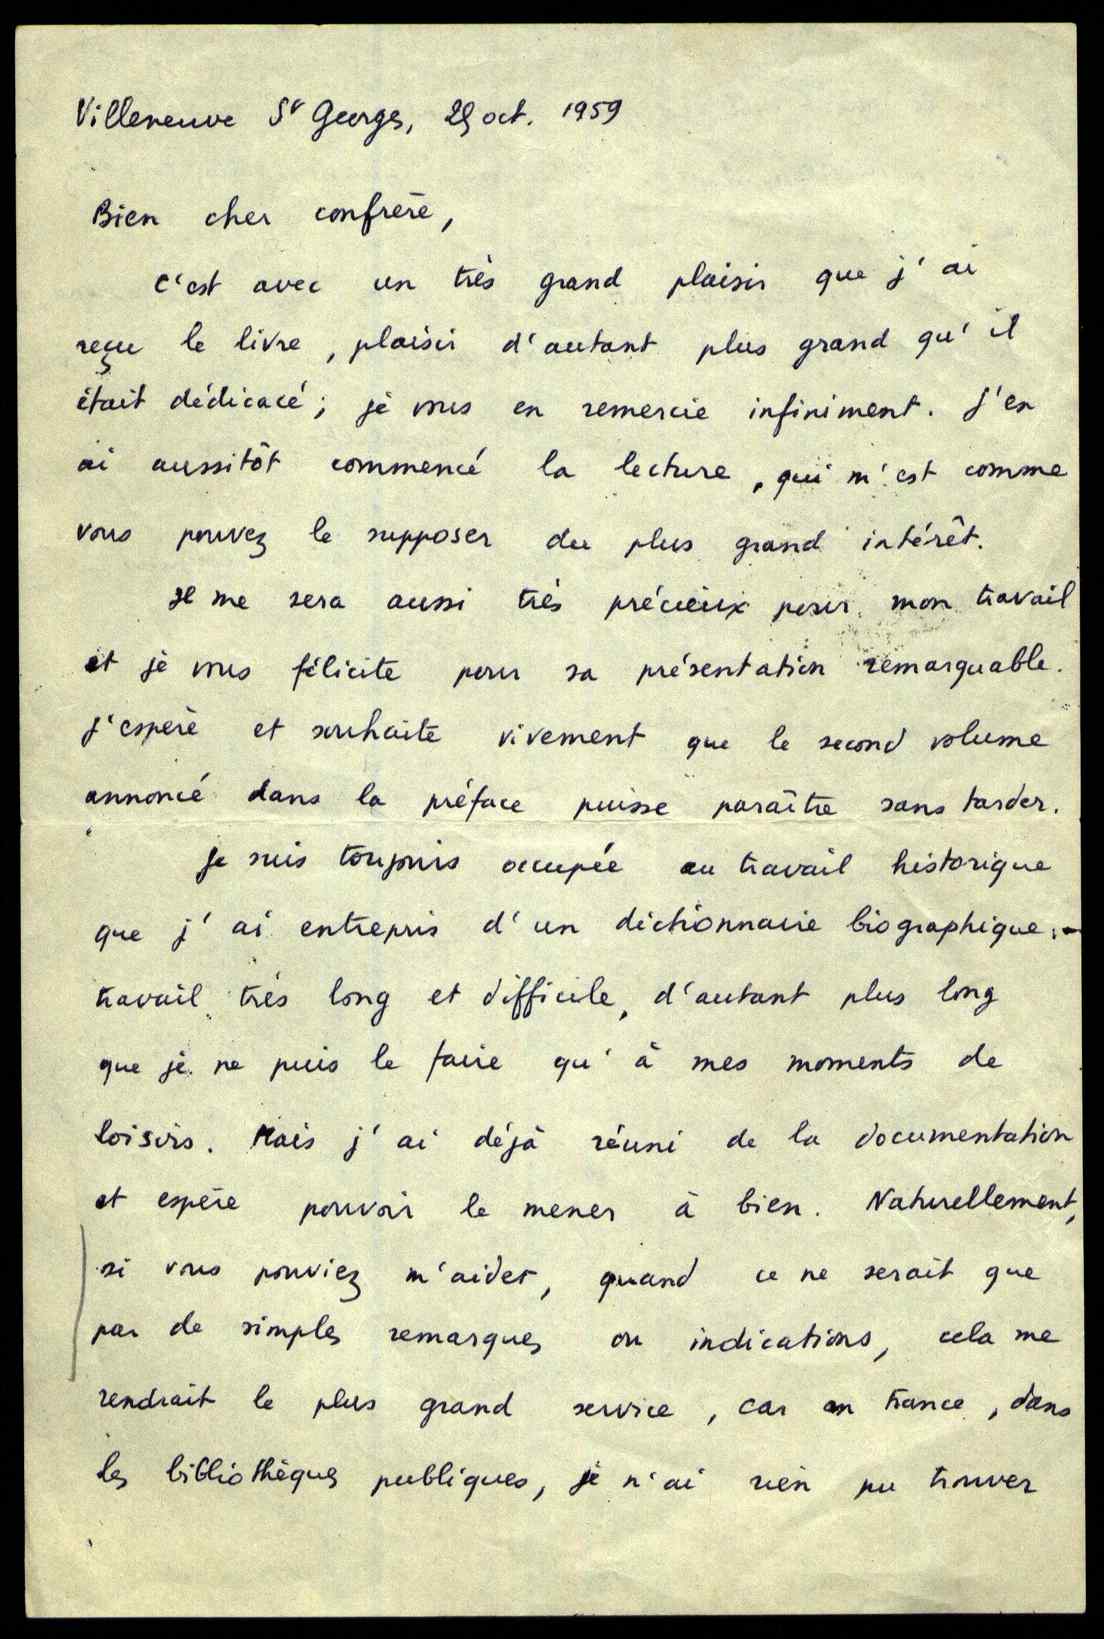 Villeneuve St Georges, 29 oct. 1959
Bien cher confrère,
C'est avec un très grand plaisir que j'ai
reçu le livre, plaisir d'autant plus grand qu'il
était dédicacé; je vous en remercie infiniment. J'en
ai aussitôt commencé la lecture, qui m'est comme
vous pouvez le supposer du plus grand intérêt.
Il me sera aussi très précieux pour mon travail
et je vous félicite pour sa présentation remarquable.
J'espère et souhaite vivement que le second volume
annoncé dans la préface puisse paraître sans tarder.
Je suis toujours occupée au travail historique
que j'ai entrepris d'un dictionnaire biographique,
travail très long et difficile, d'autant plus long
que je ne puis le faire qu'à mes moments de
loisirs. Mais j'ai déjà réuni de la documentation
et espère pouvoir le mener à bien. Naturellement,
si vous pouviez m'aider, quand ce ne serait que
par de simples remarques ou indications, cela me
rendrait le plus grand service, car en France, dans
les bibliothèques publiques, je n'ai rien pu trouver